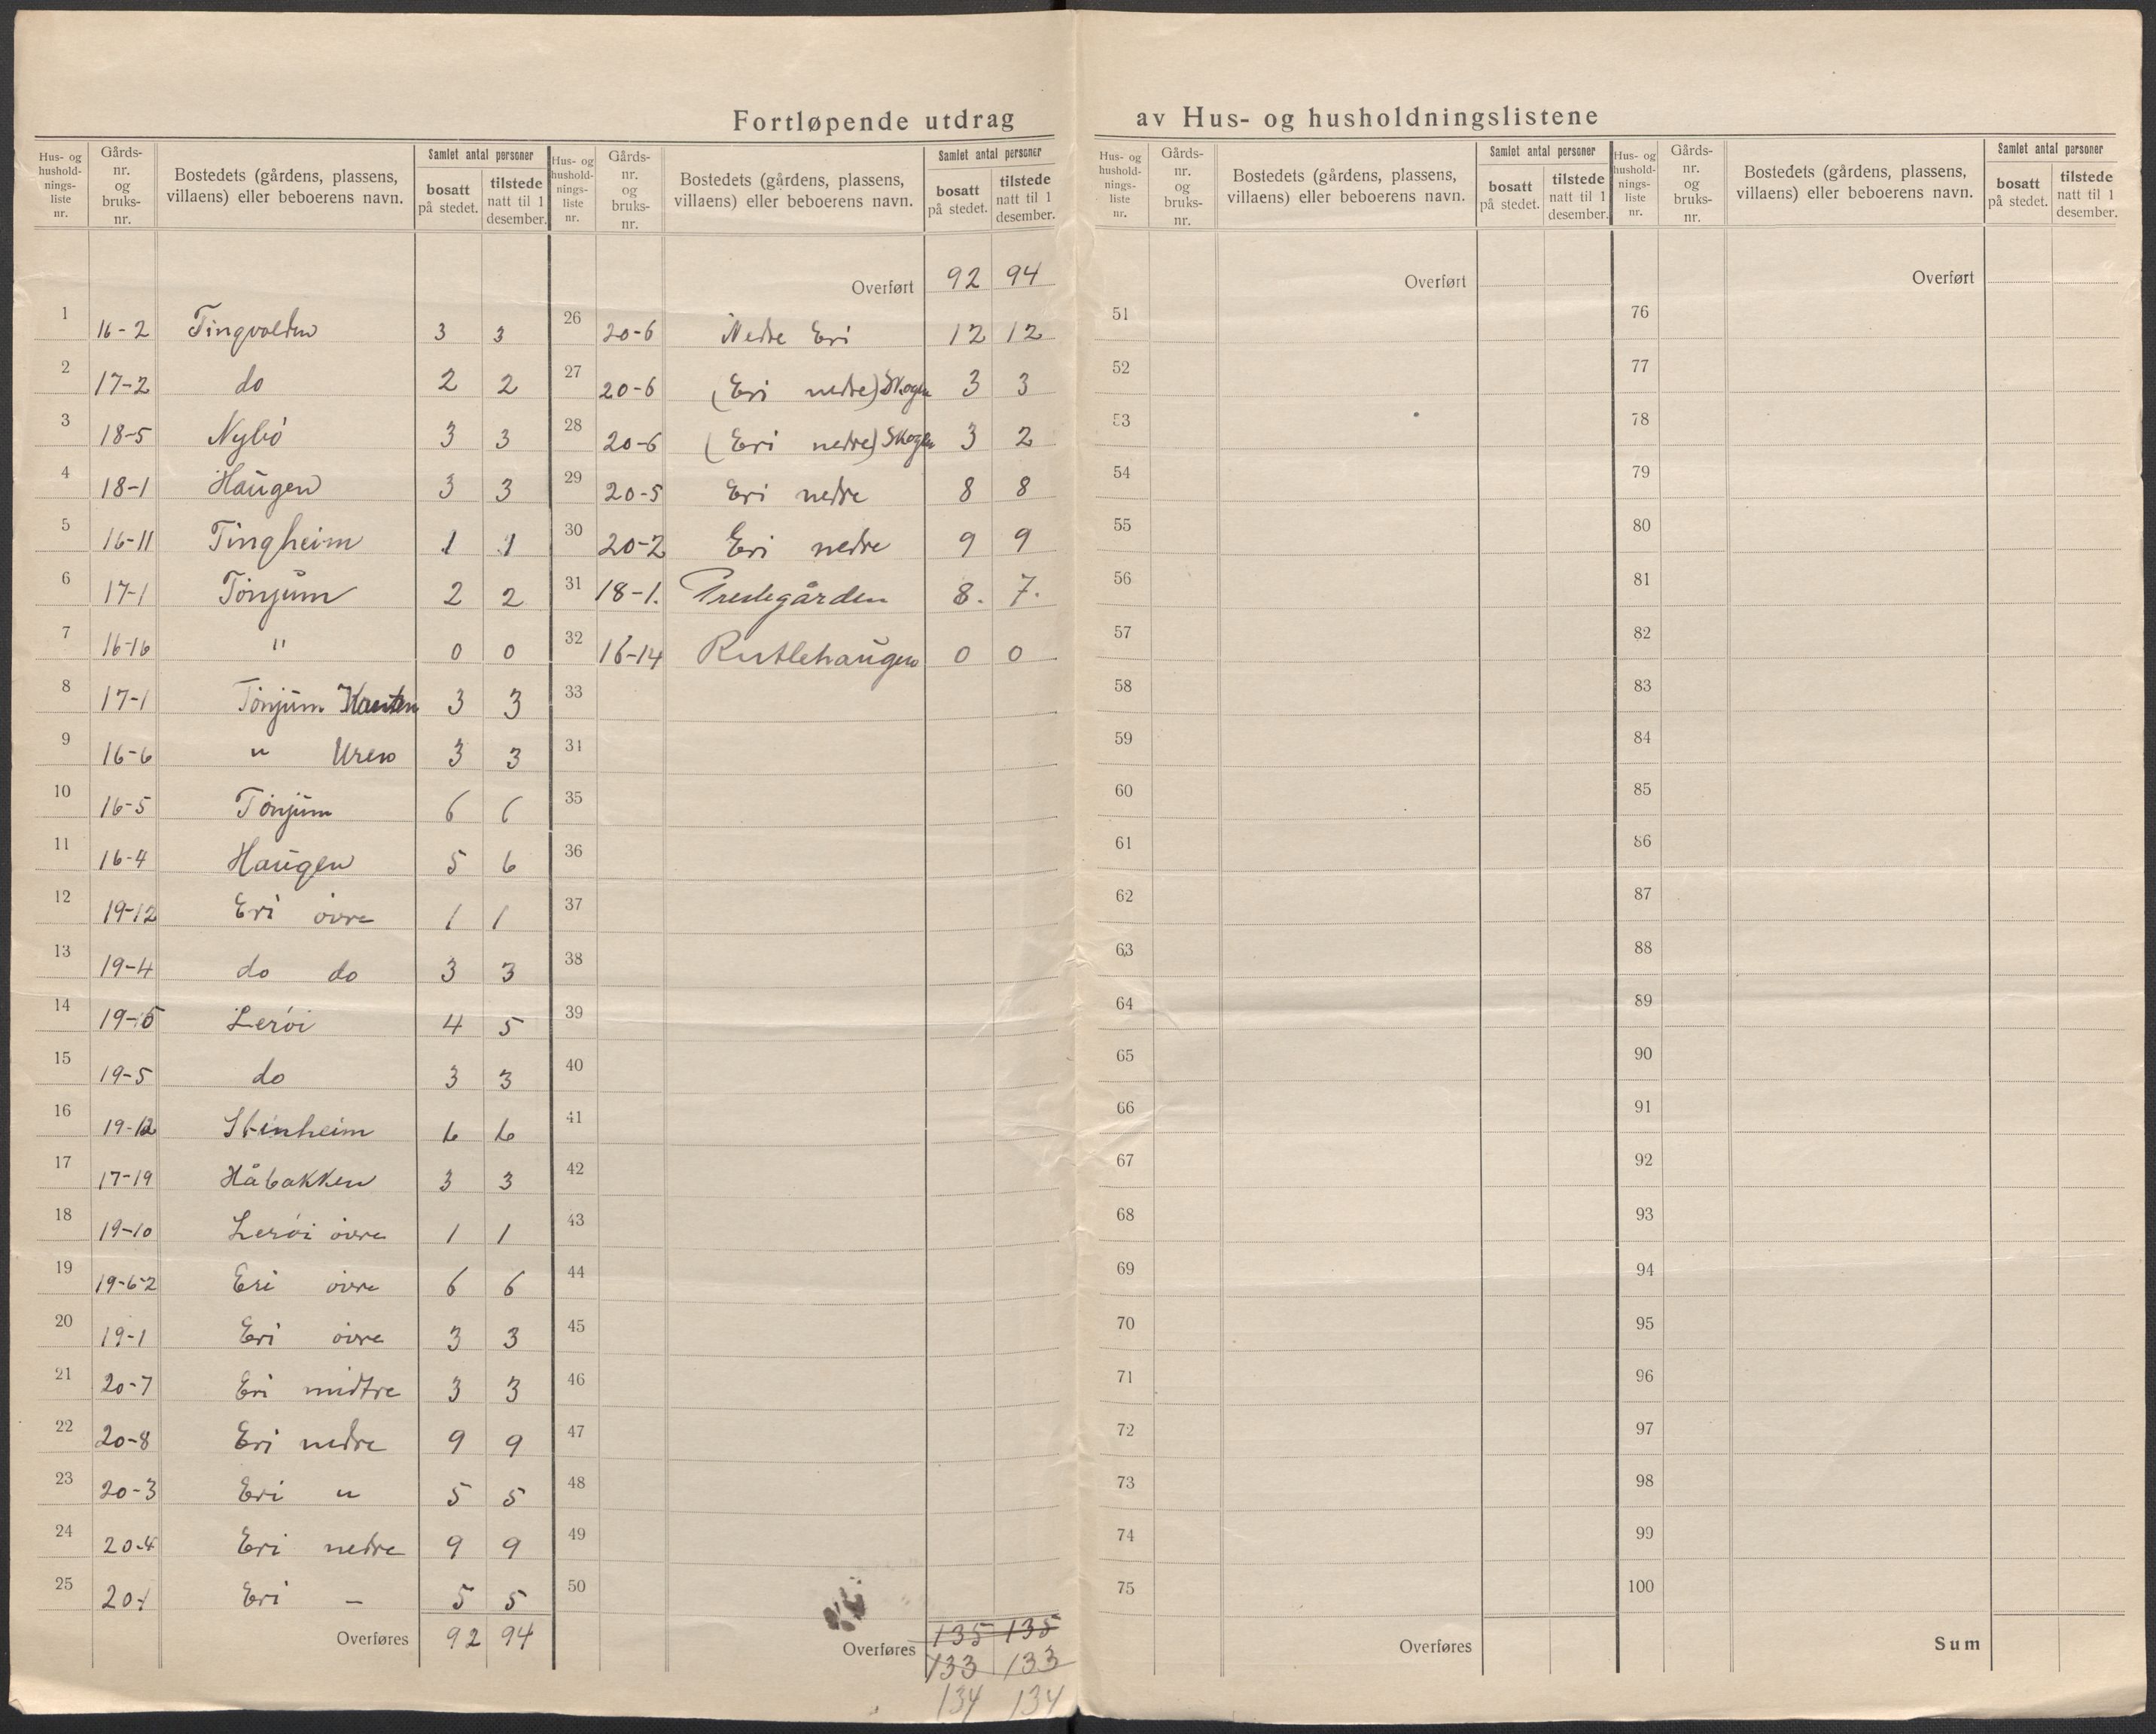 Fortløpende utdrag av Hus- og husholdningslistene
Hus- og husholdnings-liste nr. | Gårds-nr. og bruks-nr. | Bostedets (gårdens, plassens, villaens) eller beboerens navn. | Samlet antal personer | bosatt på stedet. | tilstede natt til 1 desember.
1 16-2 Tingvolden 3 3
2 17-2 do 2 2
3 18-5 Nybö 3 3
4 18-1 Haugen 3 3
5 16-11 Tingheim 1 1
6 17-1 Tönjum 2 2
7 16-16 " 0 0
8 17-1 Tönjum Kanten 3 3
9 16-6 " Uren 3 3
10 16-5 Tönjum 6 6
11 16-4 Haugen 5 6
12 19-12 Eri övre 1 1
13 19-4 do do 3 3
14 19-6 Leröi 4 5
15 19-5 do 3 3
16 19-12 Steinheim 6 6
17 17-19 Håbakken 3 3
18 19-10 Leröi övre 1 1
19 19-6-2 Eri övre 6 6
20 19-1 Eri övre 3 3
21 20-7 Eri midtre 3 3
22 20-8 Eri nedre 9 9
23 20-3 Eri " 5 5
24 20-4 Eri nedre 9 9
25 20-1 Eri – 5 5
Overføres 92 94
Hus- og husholdnings-liste nr. | Gårds-nr. og bruks-nr. | Bostedets (gårdens, plassens, villaens) eller beboerens navn. | Samlet antal personer | bosatt på stedet. | tilstede natt til 1 desember.
Overført 92 94
26 20-6 Nedre Eri 12 12
27 20-6 (Eri nedre) Skogen 3 3
28 20-6 (Eri nedre) Skogen 3 2
29 20-5 Eri nedre 8 8
30 20-2 Eri nedre 9 9
31 18-1. Prestegården 8. 7.
32 16-14 Rutlehaugen 0 0
33
31
35
36
37
38
39
40
41
42
43
44
45
46
47
48
49
50
Overføres 135 135
133 133
134 134
Hus- og husholdnings-liste nr. | Gårds-nr. og bruks-nr. | Bostedets (gårdens, plassens, villaens) eller beboerens navn. | Samlet antal personer | bosatt på stedet. | tilstede natt til 1 desember.
Overført
51
52
53
54
55
56
57
58
59
60
61
62
63
64
65
66
67
68
69
70
71
72
73
74
75
Overføres
Hus- og husholdnings-liste nr. | Gårds-nr. og bruks-nr. | Bostedets (gårdens, plassens, villaens) eller beboerens navn. | Samlet antal personer | bosatt på stedet. | tilstede natt til 1 desember.
Overført
76
77
78
79
80
81
82
83
84
85
86
87
88
89
90
91
92
93
94
95
96
97
98
99
100
Sum